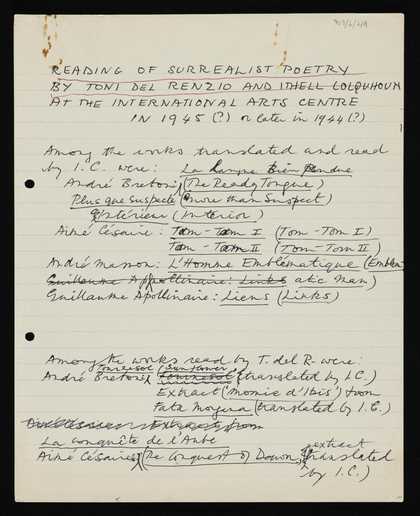 READING OF SURREALIST POETRY
BY TONI DEL RENZIO AND ITHELL COLQUHOUN
AT THE INTERNATIONAL ARTS CENTRE
IN 1945 (?) or later in 1944 (?)
Among the works translated and read
by I.C. were: La Langue Bien Pendue
André Breton: (The Ready Tongue)
Plus que suspecte (more than Suspect)
Intérieur (Interior)
Aimé Césaire: Tam-Tam I (Tom-Tom I)
Tam-Tam II (Tom-Tom II)
André Masson: L'Homme Emblématique (Emblem-
Guillaume Apollinaire: Links atic Man)
Guillaume Apollinaire: Liens (Links)
Among the works read by T. del R. were:
Tournesol (Sunflower)
André Breton: Tournesol (translated by I.C.)
Extract ('momie d'ibis') from
Fata Morgana (translated by I.C.)
Extract from
La conquête de l'Aube
Aimé Césaire: (The Conquest of Dawn, extract
translated
by I.C.)